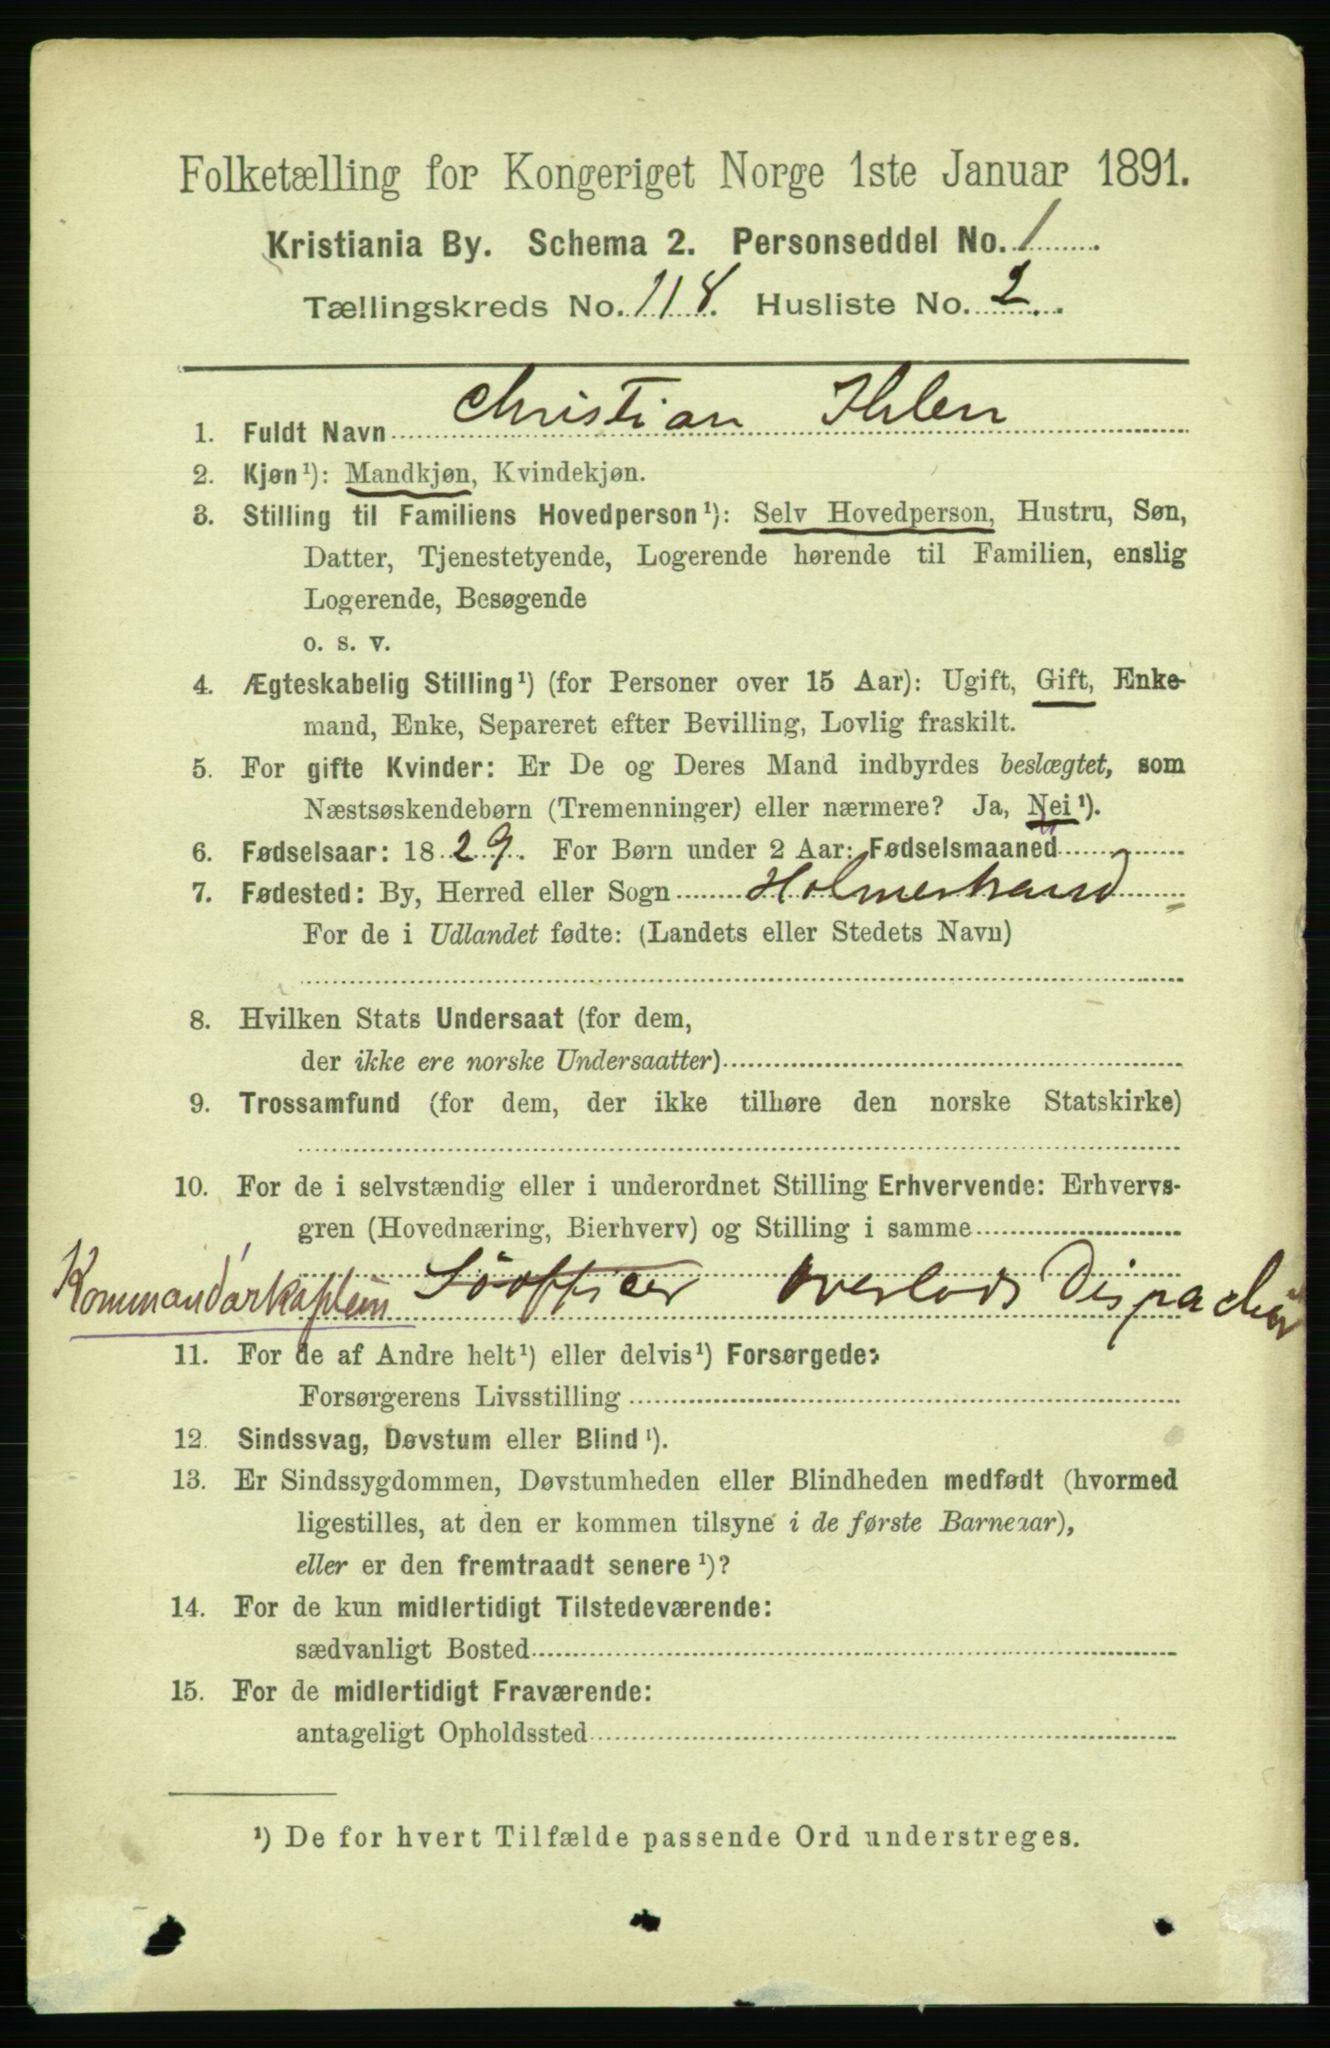 Folketælling for Kongeriget Norge 1ste Januar 1891.
Kristiania By. Schema 2. Personseddel No. 1
Tællingskreds No. 118. Husliste No. 2
1. Fuldt Navn Christian Ihlen
2. Kjøn¹): Mandkjøn, Kvindekjøn.
3. Stilling til Familiens Hovedperson¹): Selv Hovedperson, Hustru, Søn,
Datter, Tjenestetyende, Logerende hørende til Familien, enslig
Logerende, Besøgende
o. s. v.
4. Ægteskabelig Stilling¹) (for Personer over 15 Aar): Ugift, Gift, Enke-
mand, Enke, Separeret efter Bevilling, Lovlig fraskilt.
5. For gifte Kvinder: Er De og Deres Mand indbyrdes beslægtet, som
Næstsøskendebørn (Tremenninger) eller nærmere? Ja, Nei¹).
6. Fødselsaar: 1829. For Børn under 2 Aar: Fødselsmaaned
7. Fødested: By, Herred eller Sogn Holmestrand
For de i Udlandet fødte: (Landets eller Stedets Navn)
8. Hvilken Stats Undersaat (for dem,
der ikke ere norske Undersaatter)
9. Trossamfund (for dem, der ikke tilhøre den norske Statskirke)
10. For de i selvstændig eller i underordnet Stilling Erhvervende: Erhvervs-
gren (Hovednæring, Bierhverv) og Stilling i samme
Kommandørkaptein Søofficer Overlods Dispachør
11. For de af Andre helt¹) eller delvis¹) Forsørgede:
Forsørgerens Livsstilling
12. Sindssvag, Døvstum eller Blind¹).
13. Er Sindssygdommen, Døvstumheden eller Blindheden medfødt (hvormed
ligestilles, at den er kommen tilsyne i de første Barneaar),
eller er den fremtraadt senere¹)?
14. For de kun midlertidigt Tilstedeværende:
sædvanligt Bosted
15. For de midlertidigt Fraværende:
antageligt Opholdssted
¹) De for hvert Tilfælde passende Ord understreges.